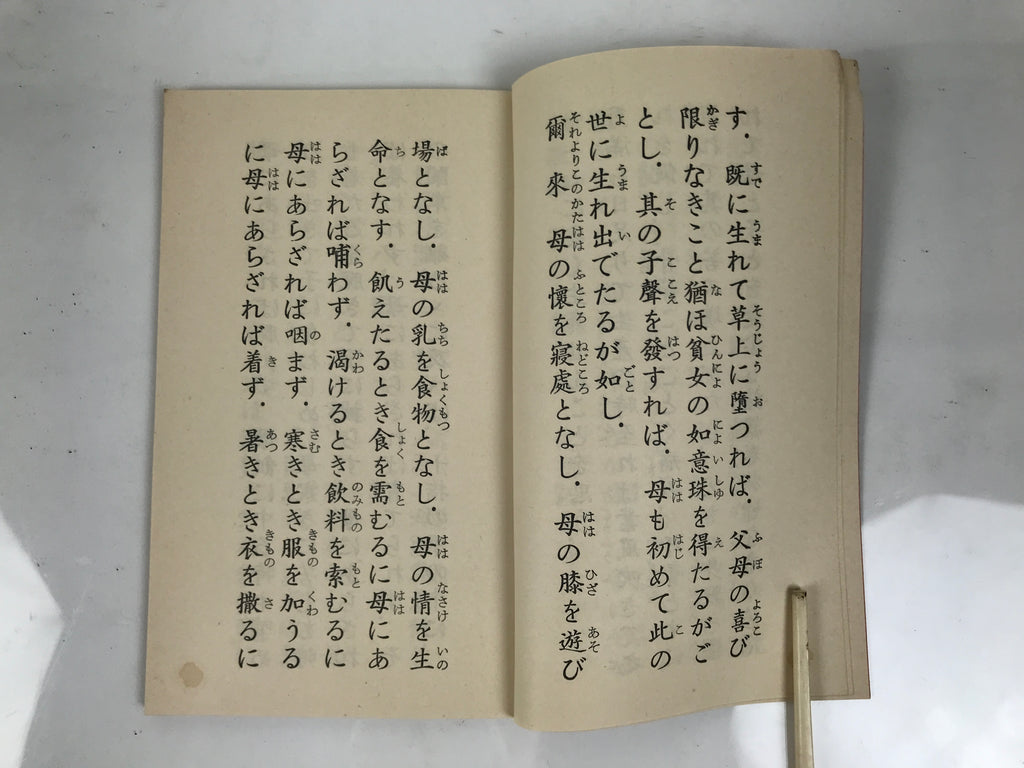 す．既に生れて草上に墮つれば．父母の喜び
限りなきこと猶ほ貧女の如意珠を得たるがご
とし．其の子聲を發すれば．母も初めて此の
世に生れ出でたるが如し．
爾來母の懷を寢處となし．母の膝を遊び
場となし．母の乳を食物となし．母の情を生
命となす．飢えたるとき食を需むるに母にあ
らざれば哺わず．渇けるとき飲料を索むるに
母にあらざれば咽まず．寒きとき服を加うる
に母にあらざれば着ず．暑きとき衣を撒るに